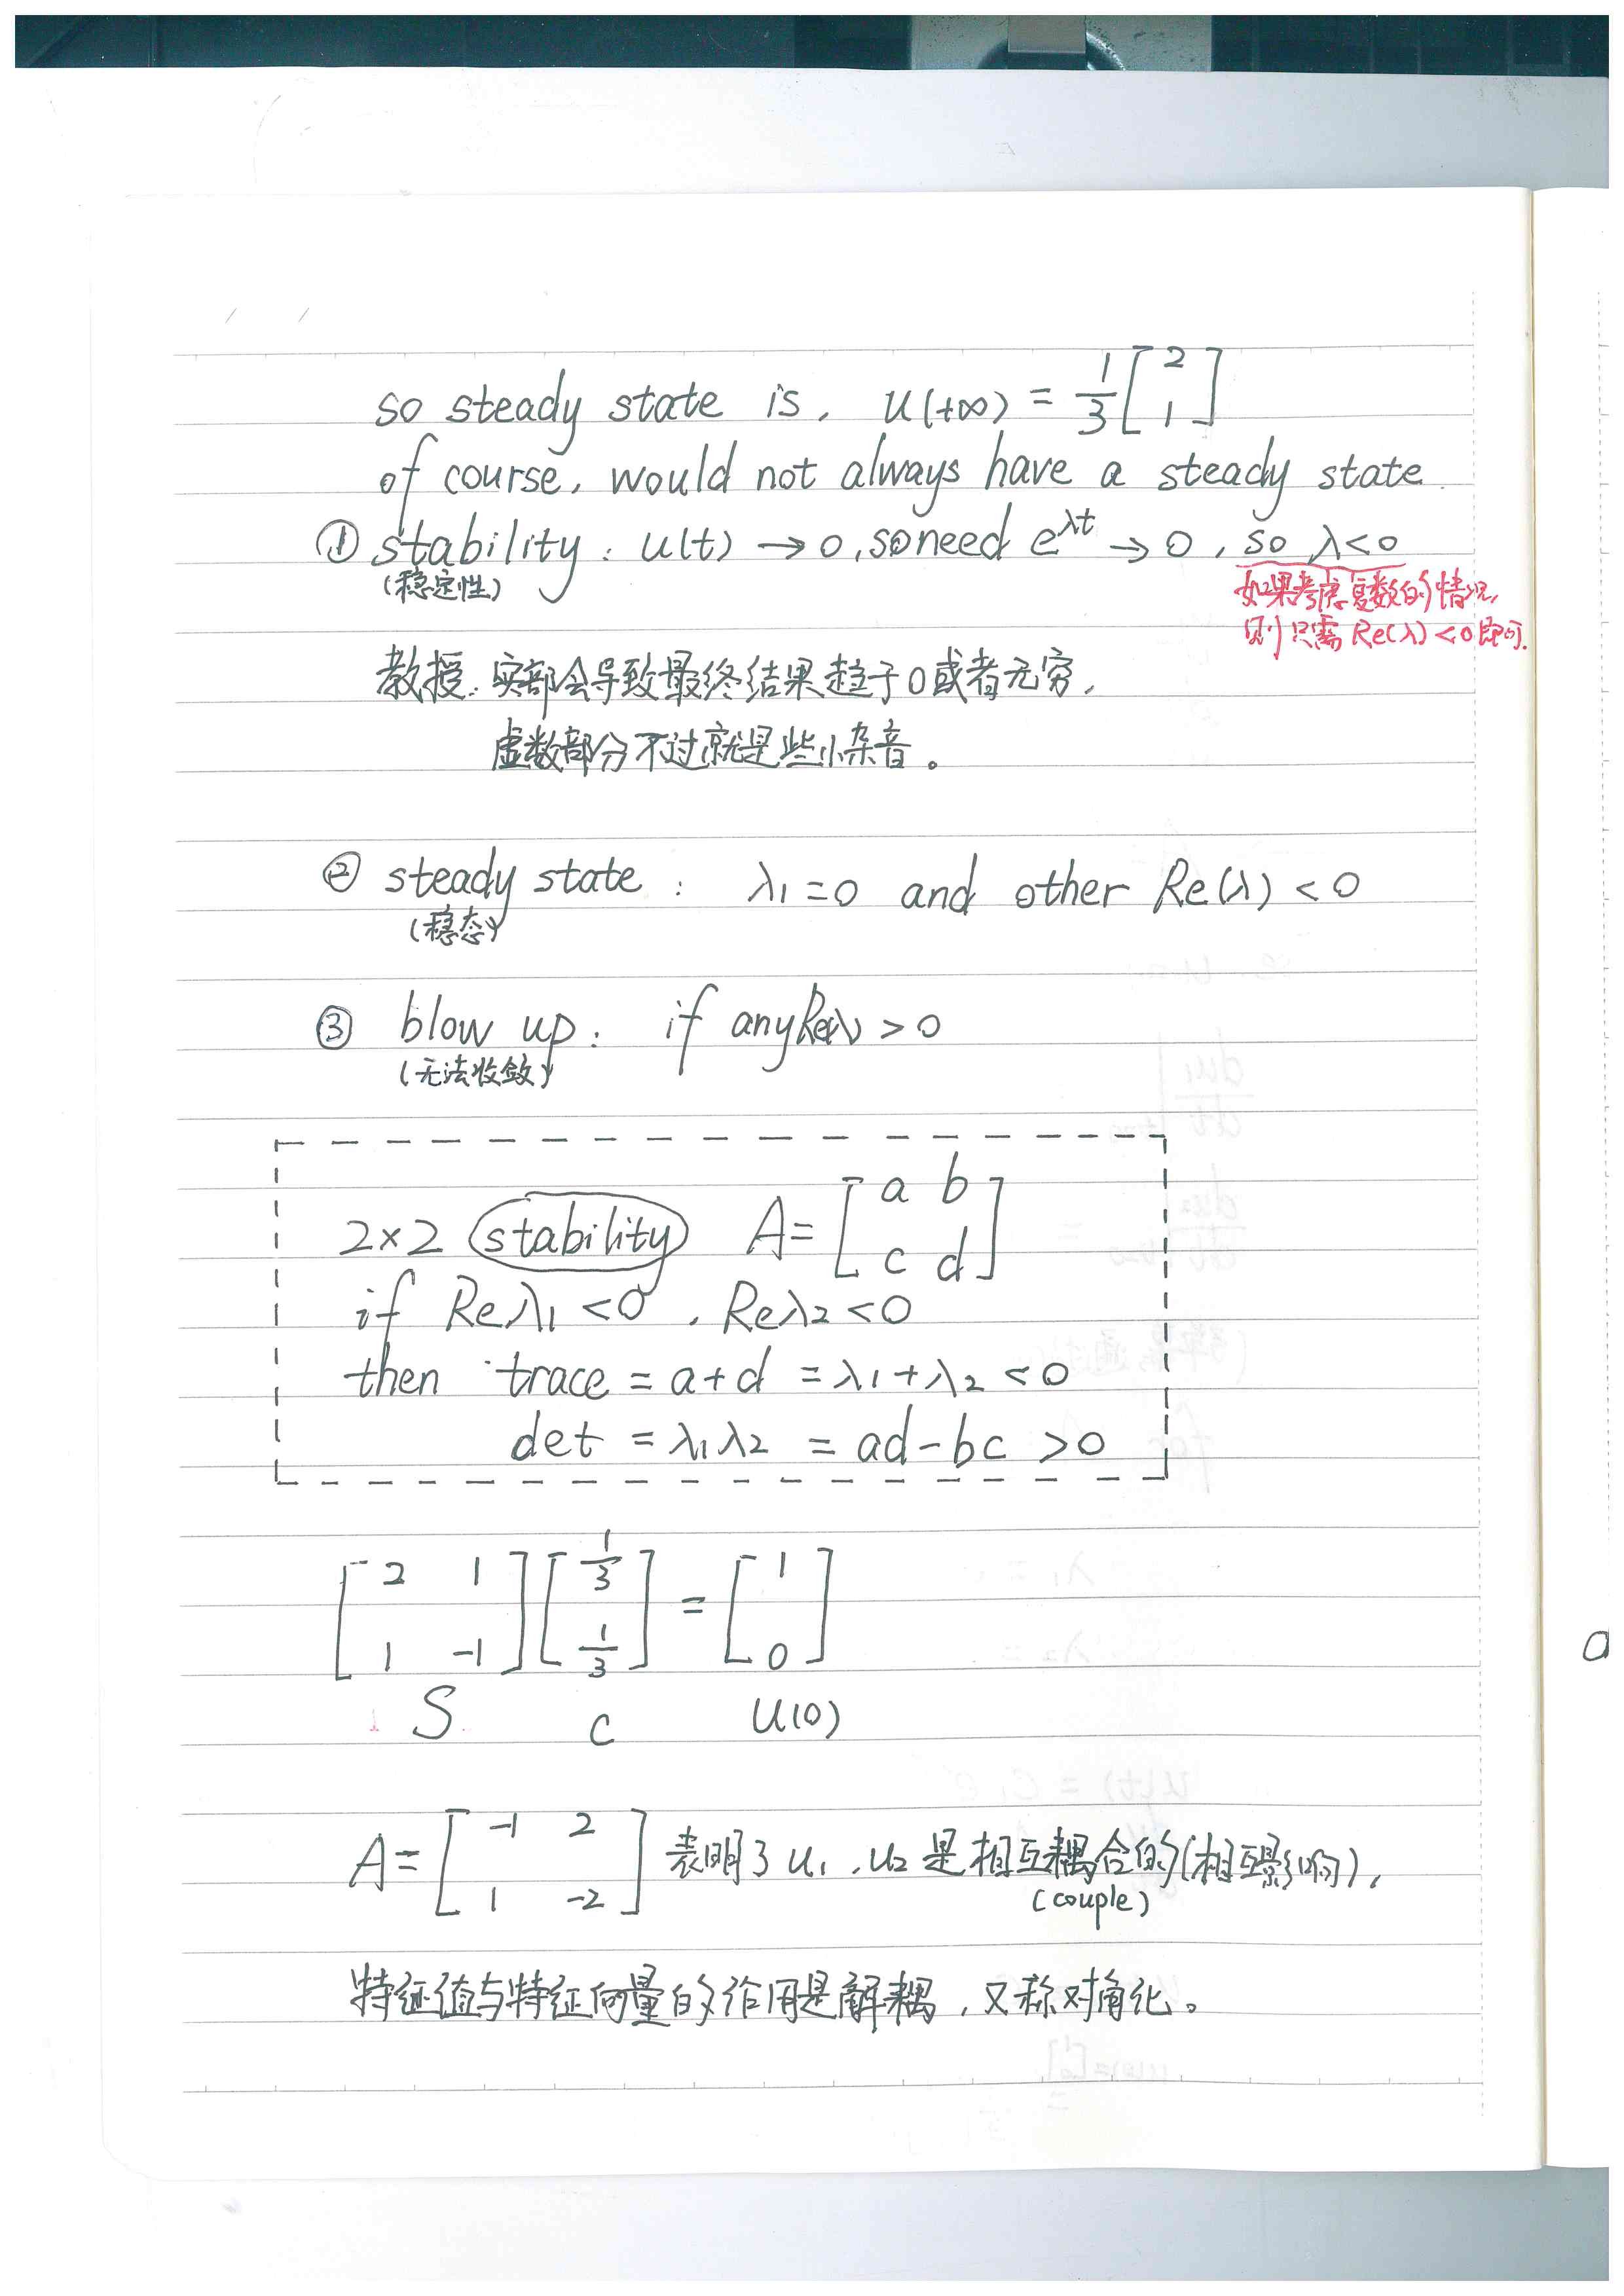 so steady state is, u(+∞) = 1/3 [2 1]
of course, would not always have a steady state.
① stability: u(t) → 0, so need e^λt → 0, so λ<0
(稳定性)
如果考虑复数的情况,
则只需 Re(λ)<0即可.
教授: 实部会导致最终结果趋于0或者无穷,
虚数部分不过就是些小杂音。
② steady state: λ1=0 and other Re(λ) < 0
(稳态)
③ blow up: if any Re(λ) > 0
(无法收敛)
2×2 stability A= [a b
c d]
if Reλ1 <0, Reλ2 <0
then trace = a+d = λ1+λ2 <0
det = λ1λ2 = ad-bc >0
[2 1
1 -1] [1/3
1/3] = [1
0]
S c u(0)
A= [-1 2
1 -2] 表明了 u1, u2 是相互耦合的(相互影响),
(couple)
特征值与特征向量的作用是解耦, 又称对角化。